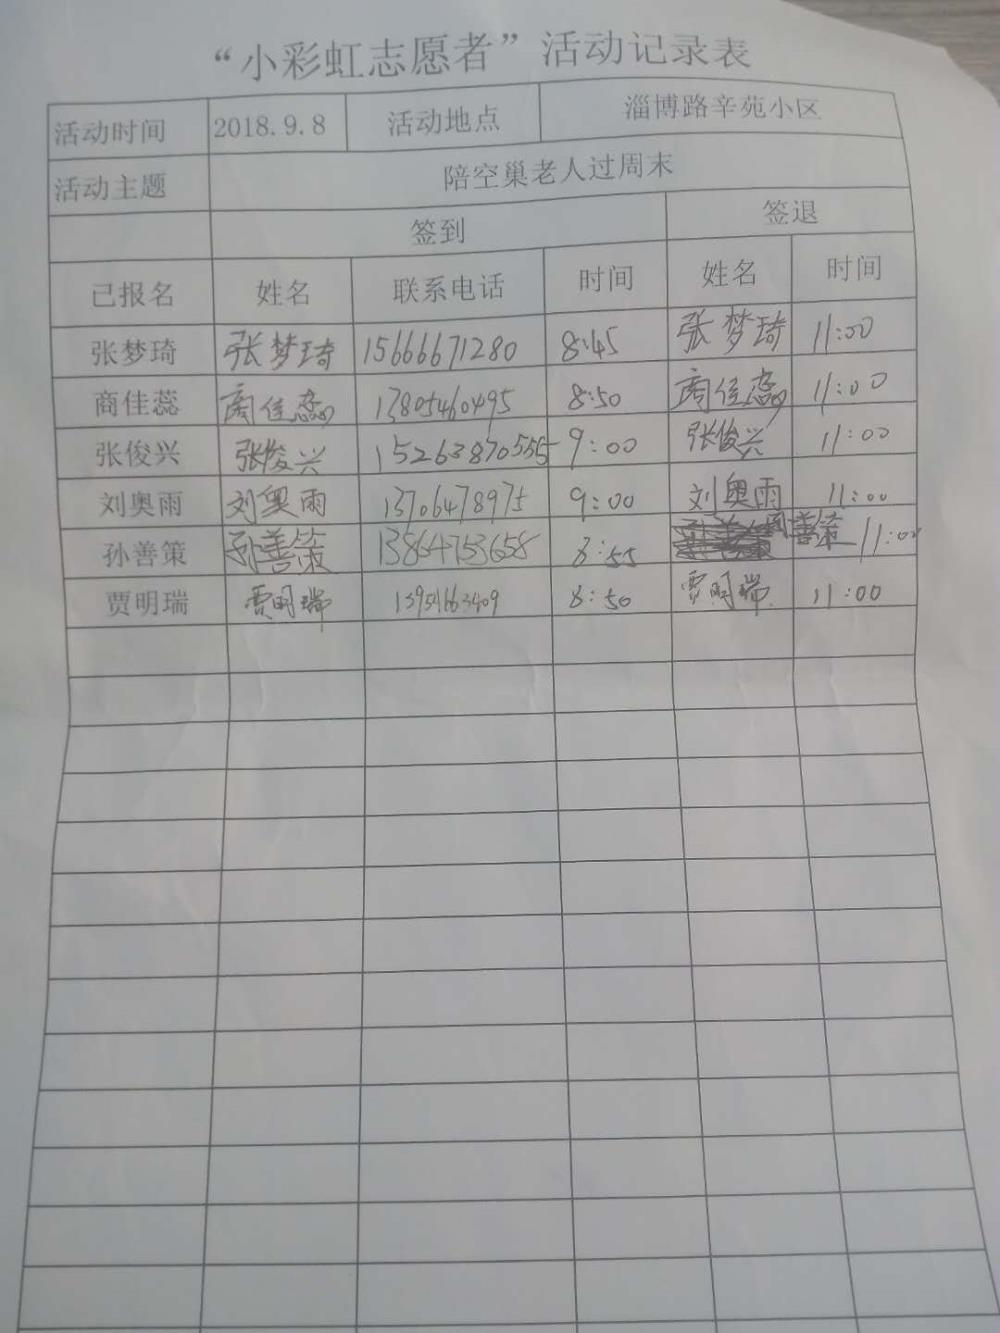 “小彩虹志愿者”活动记录表
活动时间 2018.9.8 活动地点 淄博路辛苑小区
活动主题 陪空巢老人过周末
签到 签退
已报名 姓名 联系电话 时间 姓名 时间
张梦琦 张梦琦 15666671280 8:45 张梦琦 11:00
商佳蕊 商佳蕊 13805460495 8:50 商佳蕊 11:00
张俊兴 张俊兴 15263870555 9:00 张俊兴 11:00
刘奥雨 刘奥雨 13706478975 9:00 刘奥雨 11:00
孙善策 孙善策 13864753658 8:55 善策 11:00
贾明瑞 贾明瑞 13954663409 8:50 贾明瑞 11:00